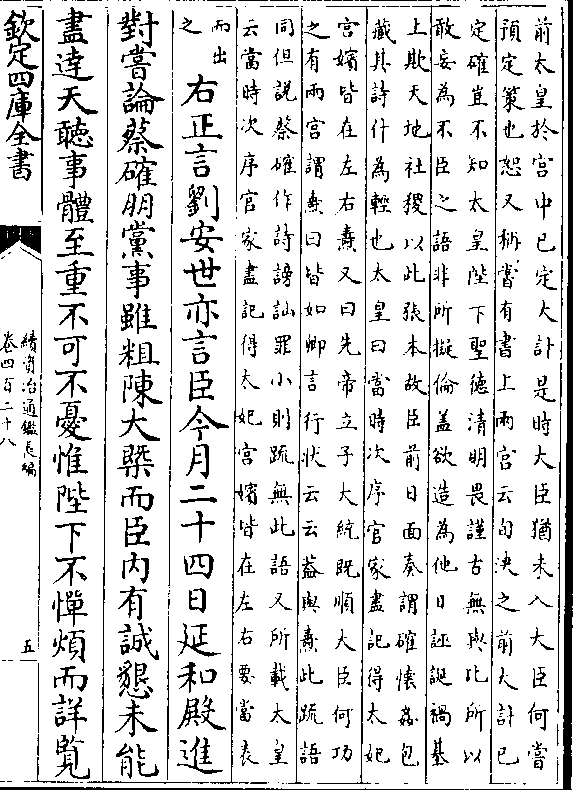 前太皇於宫中已定大計是時大臣猶未入大臣何嘗
預定策也恕又稱嘗有書上兩宫云旬決之前大計已
定確豈不知太皇陛下聖德清明畏謹古無與比所以
敢妄為不臣之語非所擬倫盖欲造為他日誣誕禍基
上欺天地社稷以此張本故臣前日面奏謂確懷姦包
藏其詩什為輕也太皇曰當時次序官家盡記得太妃
宫嬪皆在左右燾又曰先帝立子大統既順大臣何功
之有兩宫謂燾曰皆如卿言行狀云云葢與燾此疏語
同但説蔡確作詩謗訕罪小則疏無此語又所載太皇
云當時次序官家盡記得太妃宫嬪皆在左右要當表
而出
之
右正言劉安世亦言臣今月二十四日延和殿進
對嘗論蔡確朋黨事雖粗陳大槩而臣内有誠懇未能
盡達天聽事體至重不可不憂惟陛下不憚煩而詳覧
欽定四庫全書
續資治通鑑長編
卷四百二十八
五